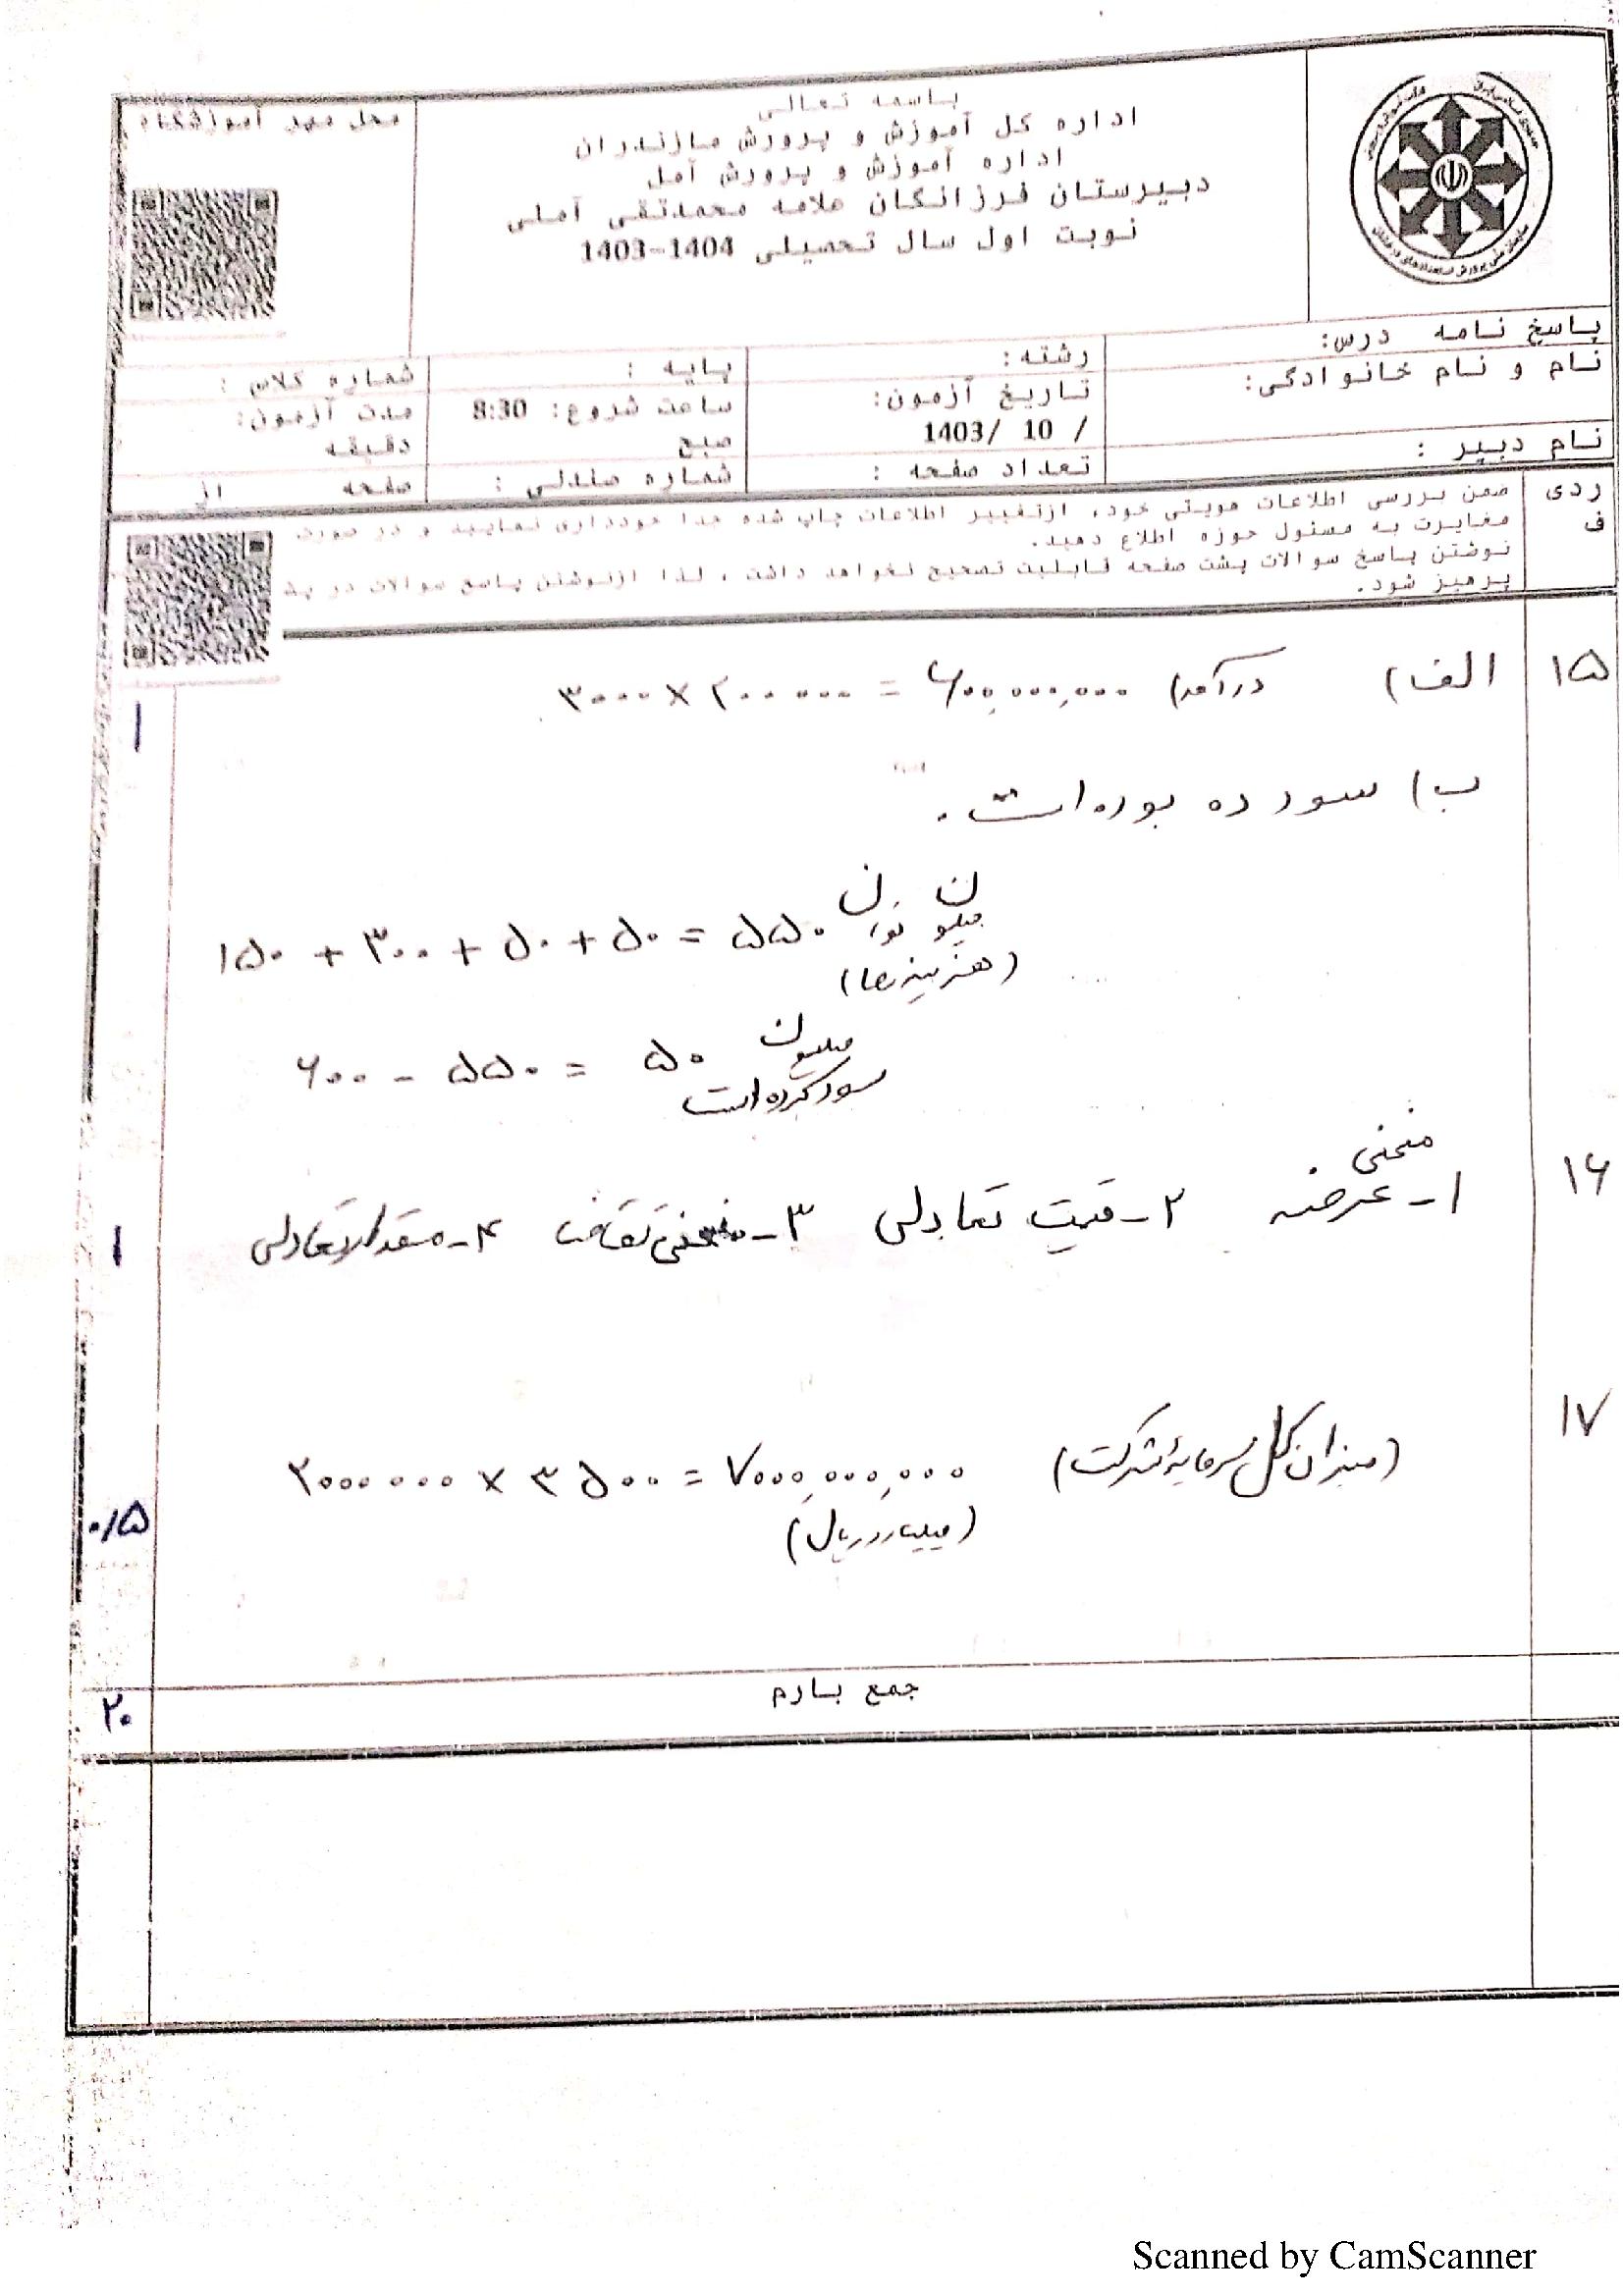 باسمه تعالی
اداره کل آموزش و پرورش مازندران
اداره آموزش و پرورش آمل
دبیرستان فرزانگان علامه محمدتقی آملی
نوبت اول سال تحصیلی 1404-1403
محل مهر آموزشگاه
پاسخ نامه درس:
رشته:
پایه :
شماره کلاس :
نام و نام خانوادگی:
تاریخ آزمون:
/ 10 /1403
ساعت شروع: 8:30
صبح
مدت آزمون:
دقیقه
نام دبیر :
تعداد صفحه :
شماره صندلی :
صفحه از
ردیف
ضمن بررسی اطلاعات هویتی خود، ازتغییر اطلاعات چاپ شده جدا خودداری نمایید و در صورت
مغایرت به مسئول حوزه اطلاع دهید.
نوشتن پاسخ سوالات پشت صفحه قابلیت تصحیح نخواهد داشت ، لذا ازنوشتن پاسخ سوالات در پش
پرهیز شود.
۱۵
الف) (درآمد ۳۰۰۰ × ۲۰۰۰۰۰ = ۶۰۰,۰۰۰,۰۰۰
۱
ب) سود ده بوده است.
۱۵۰ + ۳۰۰ + ۵۰ + ۵۰ = ۵۵۰ میلیون تومان
(هزینه ها)
۶۰۰ - ۵۵۰ = ۵۰ میلیون
سود کرده است
۱۶
۱- منحنی عرضه ۲- قیمت تعادلی ۳- منحنی تقاضا ۴- مقدار تعادلی
۱
۱۷
۲۰۰۰۰۰۰ × ۳۵۰۰ = ۷۰۰۰,۰۰۰,۰۰۰ (میزان کل سرمایه شرکت)
(میلیارد ریال)
۰/۵
جمع بارم
۲۰
Scanned by CamScanner